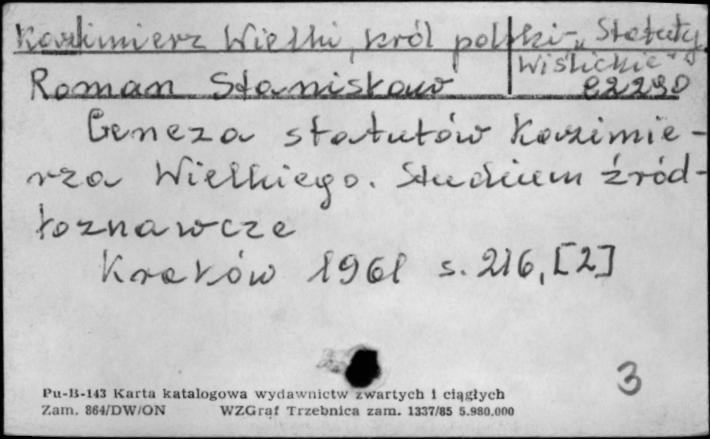 Kazimierz Wielki, król polski - „Statuty
Wiślickie"
Roman Stanisław
C2290
Geneza statutów Kazimie-
rza Wielkiego. Studium źród-
łoznawcze
Kraków 1961 s. 216, [2]
3
Pu-B-143 Karta katalogowa wydawnictw zwartych i ciągłych
Zam. 864/DW/ON WZGraf Trzebnica zam. 1337/85 5.980.000